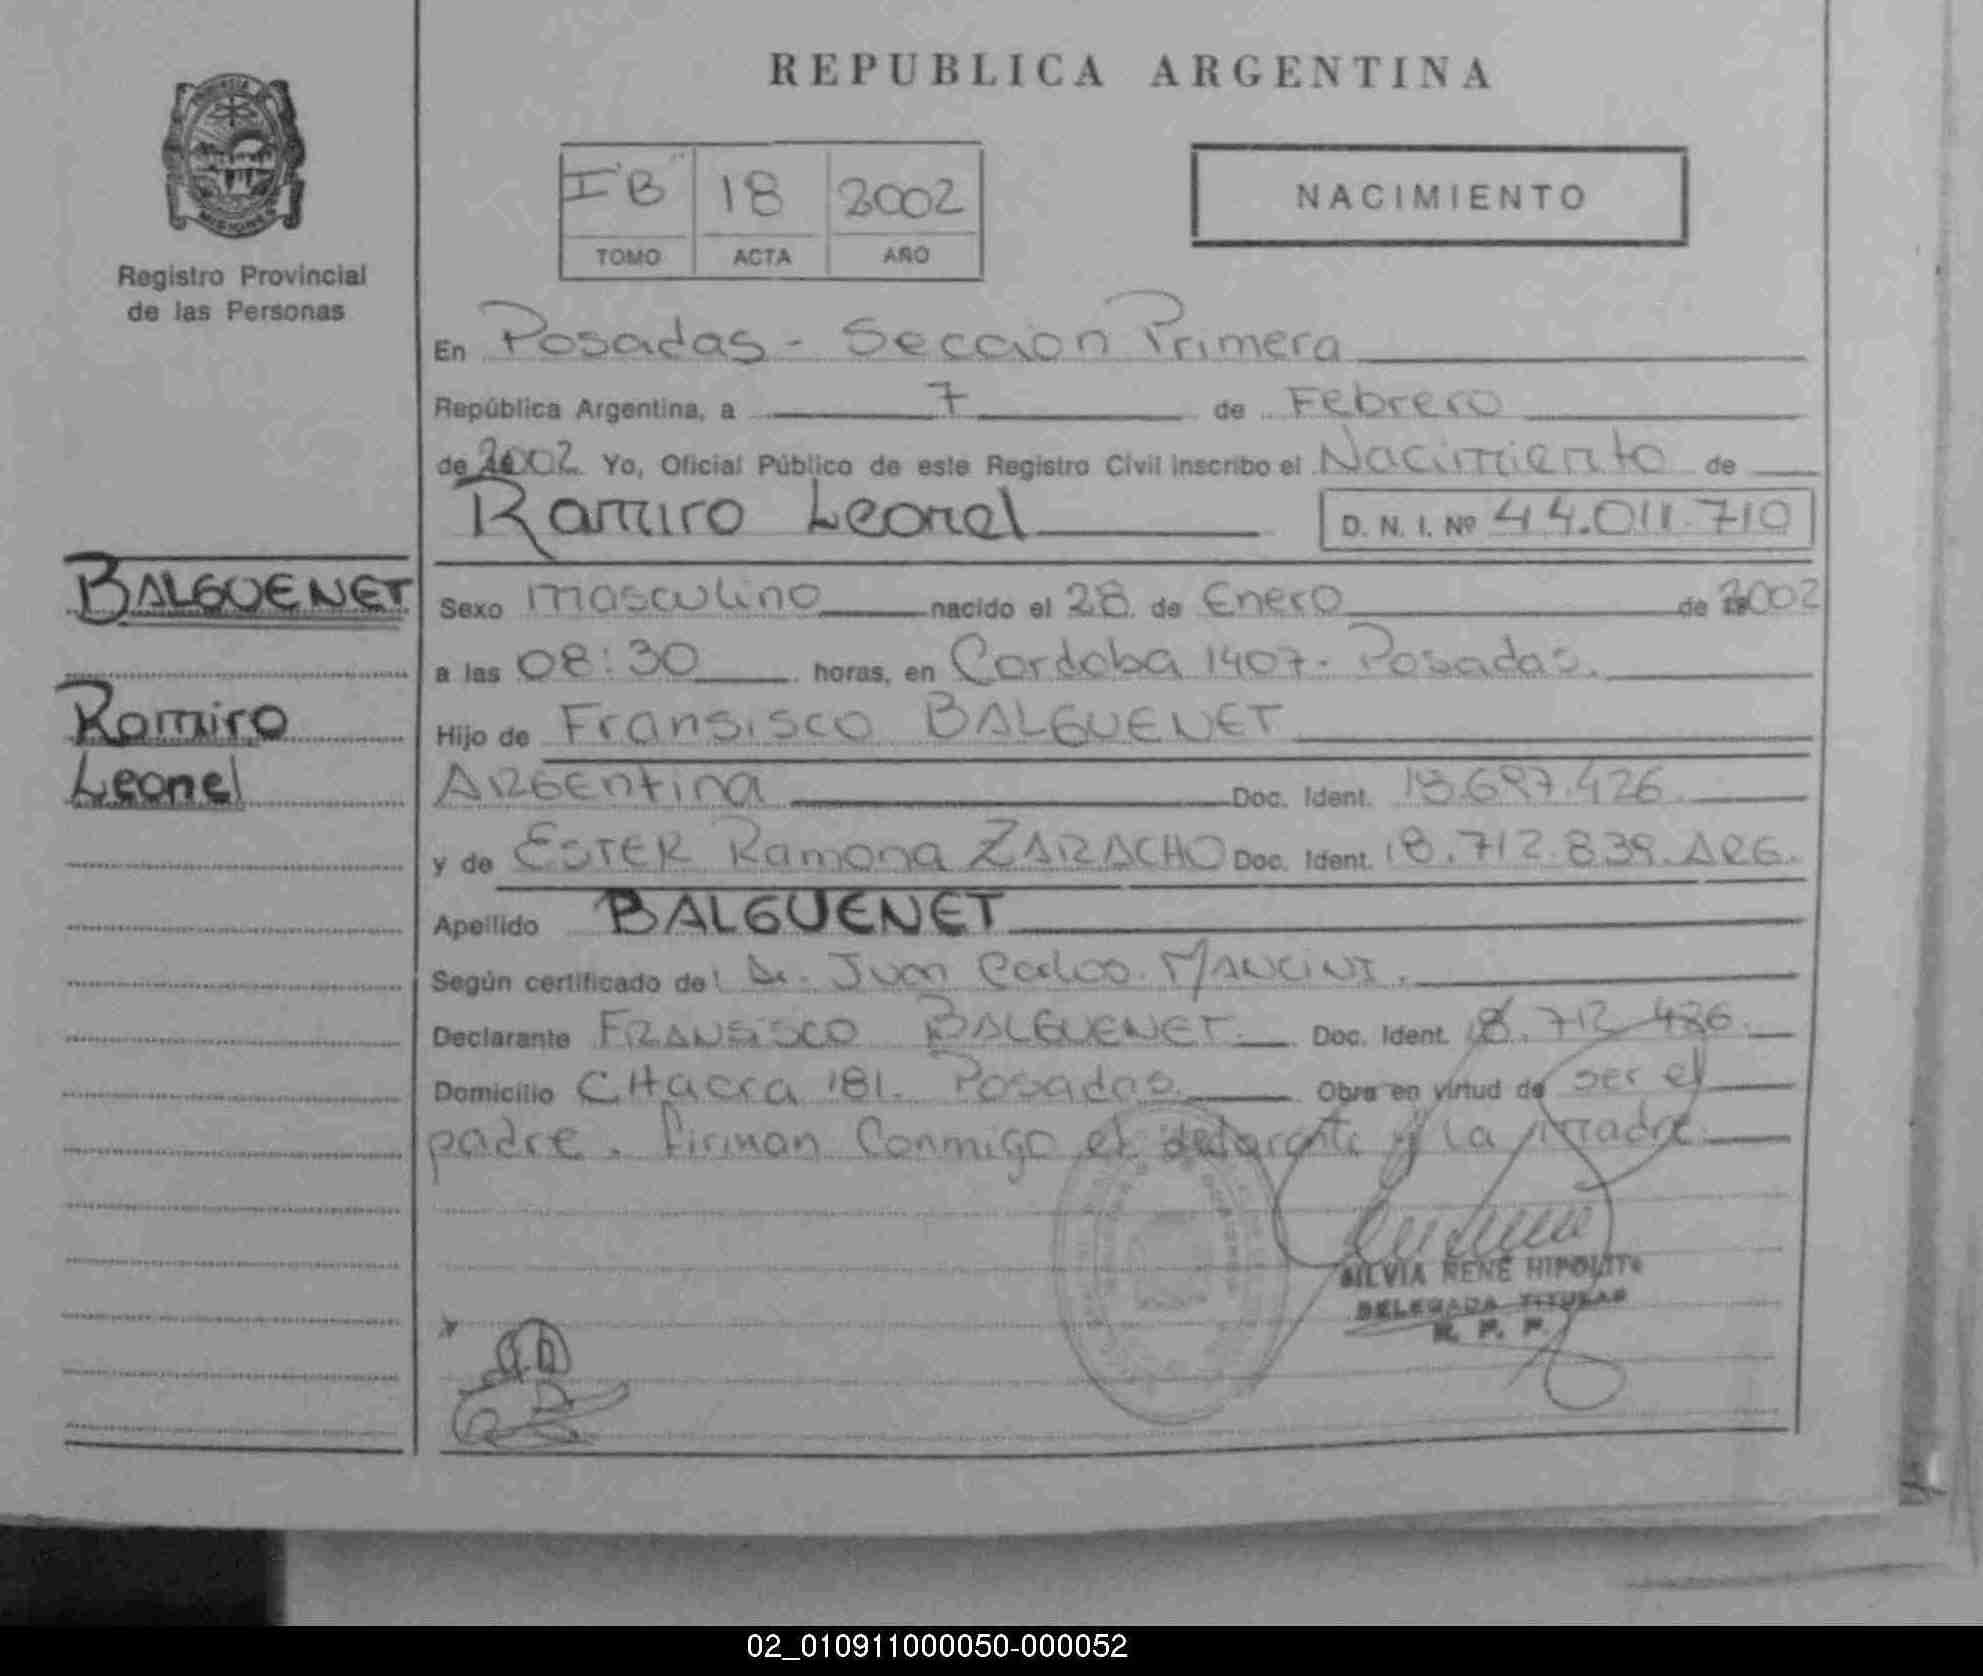 REPUBLICA ARGENTINA
I "B" 18 2002
TOMO ACTA AÑO
NACIMIENTO
Registro Provincial
de las Personas
En Posadas - Seccion Primera
República Argentina, a 7 de Febrero
de 2002 Yo, Oficial Público de este Registro Civil inscribo el Nacimiento de
Ramiro Leonel D. N. I. Nº 44.011.710
BALGUENET
Ramiro
Leonel
Sexo masculino nacido el 28 de Enero de 2002
a las 08:30 horas, en Cordoba 1407 - Posadas.
Hijo de Fransisco BALGUENET
ARGentina Doc. Ident. 18.697.426
y de ESTER Ramona ZARACHO Doc. Ident. 18.712.839. ARG.
Apellido BALGUENET
Según certificado del Dr. Juan Carlos MANCINI.
Declarante FRANSISCO BALGUENET Doc. Ident. 18.712.486
Domicilio CHacra 181. Posadas Obra en virtud de ser el
padre. firman Conmigo el declarante y La madre
SILVIA RENE HIPOLITO
DELEGADA TITULAR
R. P. P.
02_010911000050-000052